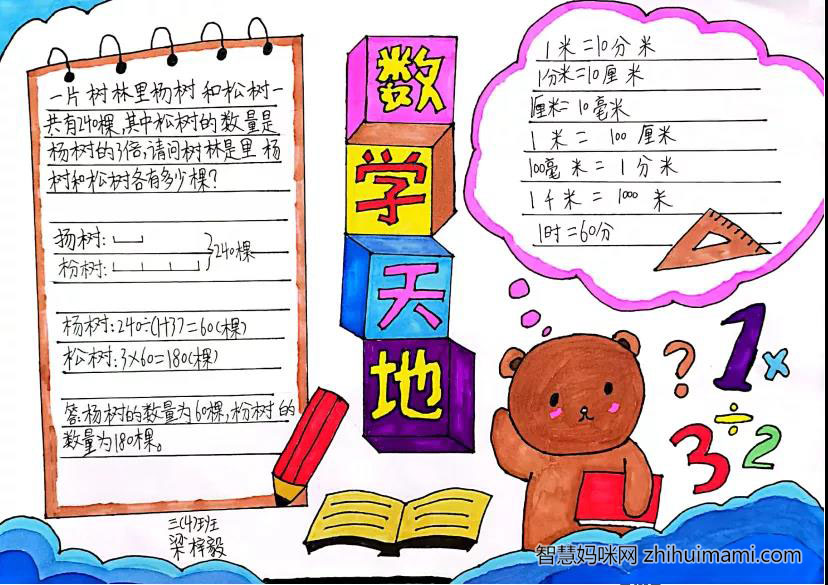 一片树林里杨树和松树一
共有240棵,其中松树的数量是
杨树的3倍,请问树林是里杨
树和松树各有多少棵?
扬树:
240棵
枌树:
杨树:240÷(1+3)=60(棵)
松树:3×60=180(棵)
答:杨树的数量为60棵,枌树的
数量为180棵。
三(4)班
梁梓毅
数
学
天
地
1米=10分米
1分米=10厘米
1厘米=10毫米
1米=100厘米
100毫米=1分米
1千米=1000米
1时=60分
?
1
×
3
÷
2
智慧妈咪网 zhihuimami.com